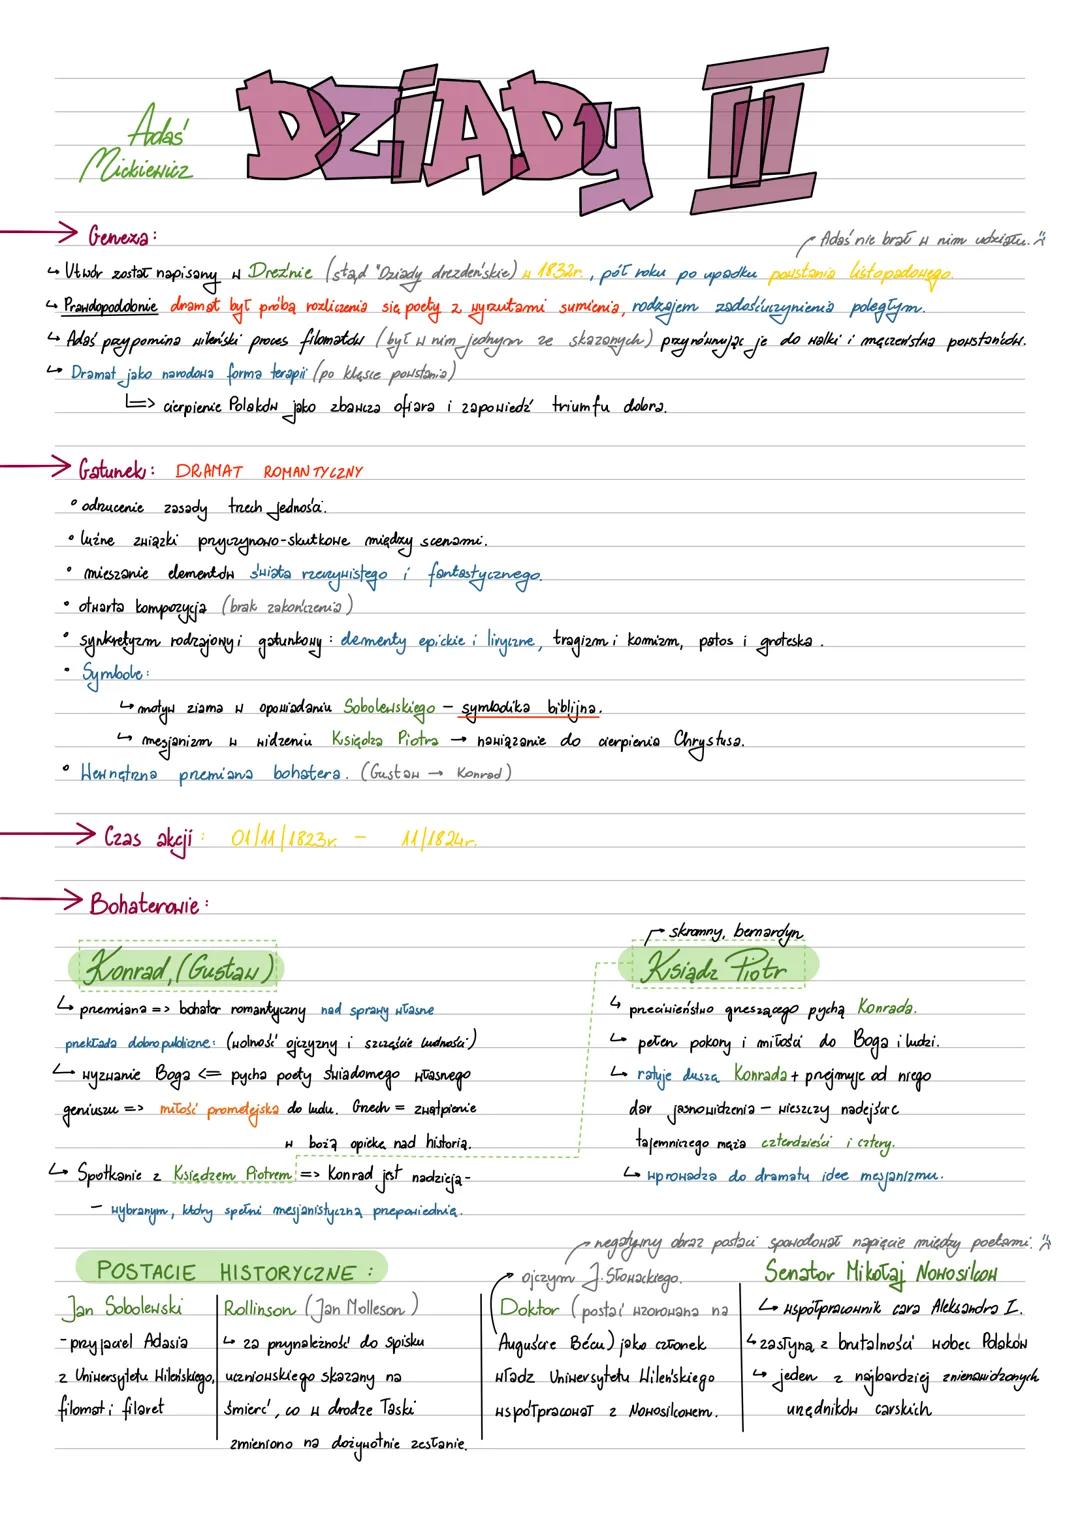 Adaś
Mickiewicz
DZiADy III
Geneza:
Adaś nie brał w nim udziału.
↳ Utwór został napisany w Dreźnie (stąd "Dziady drezdeńskie) w 1832r., pół roku po upadku powstania listopadowego.
↳ Prawdopodobnie dramat był próbą rozliczenia się poety z wyrzutami sumienia, rodzajem zadośćuczynienia poległym.
↳ Adaś przypomina wileński proces filomatów (był w nim jednym ze skazanych) przyrównując je do walki i męczeństwa powstańców.
↳ Dramat jako narodowa forma terapii (po klęsce powstania)
=> cierpienie Polaków jako zbawcza ofiara i zapowiedź triumfu dobra.
Gatunek: DRAMAT ROMANTYCZNY
• odrzucenie zasady trzech jedności.
• luźne związki przyczynowo-skutkowe między scenami.
• mieszanie elementów świata rzeczywistego i fantastycznego.
• otwarta kompozycja (brak zakończenia)
• synkretyzm rodzajowy i gatunkowy: elementy epickie i liryczne, tragizm i komizm, patos i groteska.
• Symbole:
↳ motyw ziarna w opowiadaniu Sobolewskiego – symbolika biblijna.
↳ mesjanizm w widzeniu Księdza Piotra → nawiązanie do cierpienia Chrystusa.
• Wewnętrzna przemiana bohatera. (Gustaw → Konrad)
Czas akcji: 01/11/1823r. – 11/1824r.
Bohaterowie:
Konrad, (Gustaw)
↳ przemiana => bohater romantyczny nad sprawy własne
przekłada dobro publiczne: (wolność ojczyzny i szczęście ludności)
↳ wyzwanie Boga <= pycha poety świadomego własnego
geniuszu => miłość prometejska do ludu. Grzech = zwątpienie
w bożą opiekę nad historią.
↳ Spotkanie z Księdzem Piotrem => Konrad jest nadzieją-
– wybranym, który spełni mesjanistyczną przepowiednię.
skromny, bernardyn
Ksiądz Piotr
↳ przeciwieństwo grzeszącego pychą Konrada.
↳ pełen pokory i miłości do Boga i ludzi.
↳ ratuje duszę Konrada + przejmuje od niego
dar jasnowidzenia – wieszczy nadejście
tajemniczego męża czterdzieści i cztery.
↳ wprowadza do dramatu idee mesjanizmu.
POSTACIE HISTORYCZNE:
Jan Sobolewski
- przyjaciel Adasia
z Uniwersytetu Wileńskiego,
filomat i filaret
Rollinson (Jan Molleson)
↳ za przynależność do spisku
uczniowskiego skazany na
śmierć, co w drodze łaski
zmieniono na dożywotnie zesłanie.
negatywny obraz postaci spowodował napięcie między poetami.
ojczym J. Słowackiego.
Doktor (postać wzorowana na
Auguście Bécu) jako członek
władz Uniwersytetu Wileńskiego
współpracował z Nowosilcowem.
Senator Mikołaj Nowosilcow
↳ współpracownik cara Aleksandra I.
↳ zasłyną z brutalności wobec Polaków
↳ jeden z najbardziej znienawidzonych
urzędników carskich